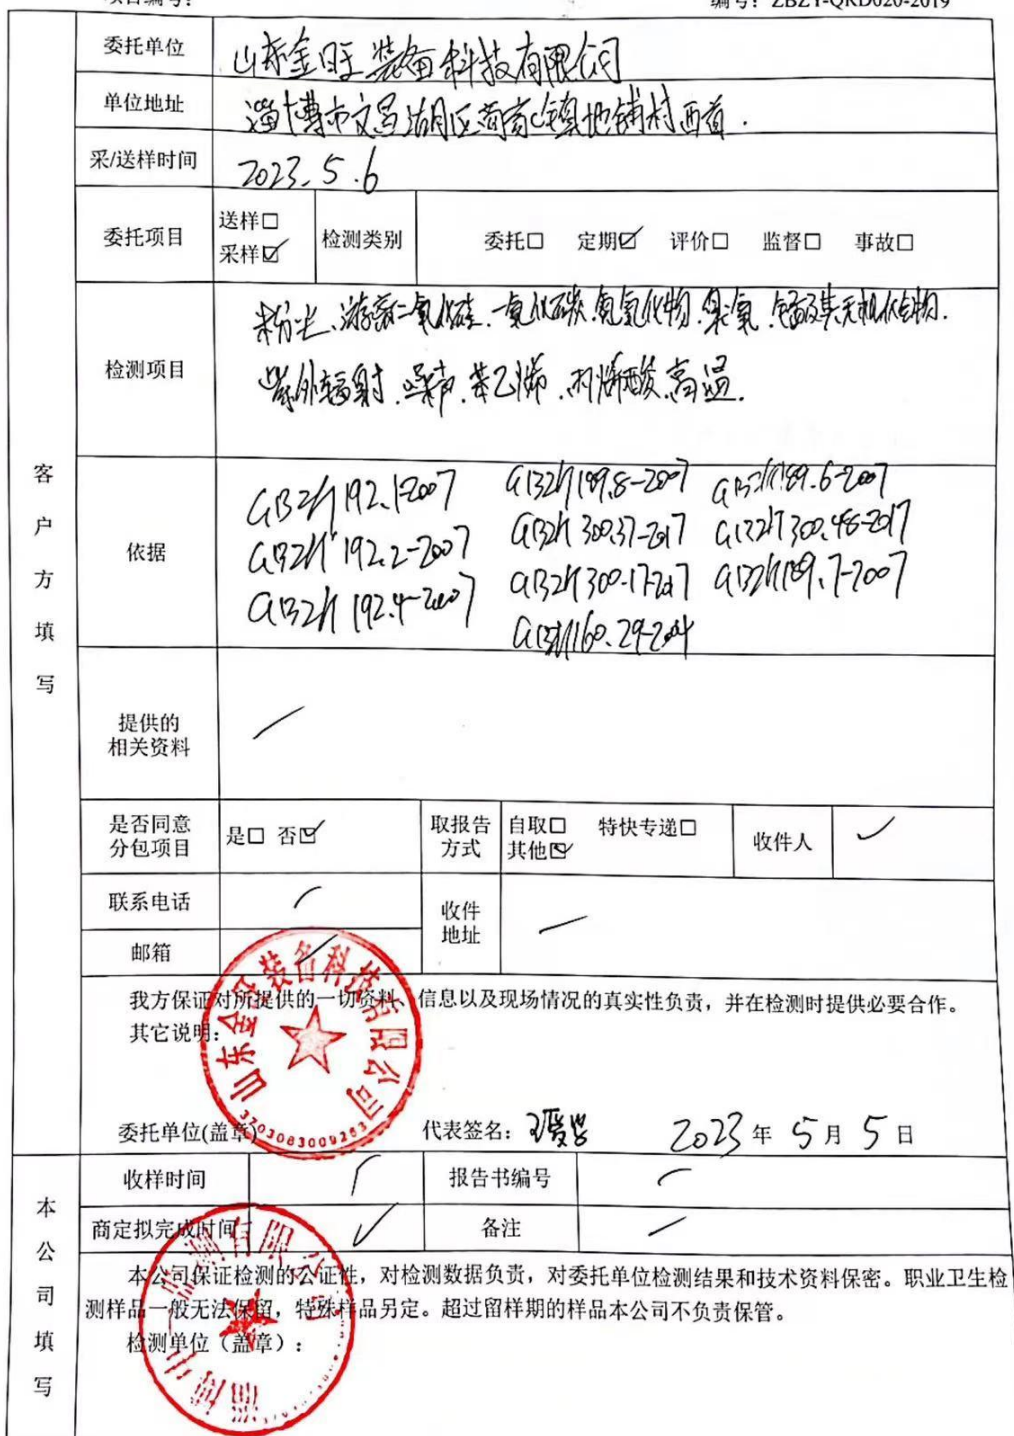 编号：ZBZY-QRD020-2019
委托单位 山东金旺装备科技有限公司
单位地址 淄博市文昌湖区商家镇地铺村西首.
采/送样时间 2023.5.6
委托项目 送样□ 采样☑ 检测类别 委托□ 定期☑ 评价□ 监督□ 事故□
检测项目
粉尘、游离二氧化硅.一氧化碳.氮氧化物.臭氧.锰及其无机化合物.
紫外辐射.噪声.苯乙烯.丙烯酸.高温.
客户方填写
依据
GBZ/T 192.1-2007 GBZ/T 189.8-2007 GBZ/T 189.6-2007
GBZ/T 192.2-2007 GBZ/T 300.37-2017 GBZ/T 300.48-2017
GBZ/T 192.4-2007 GBZ/T 300.17-2017 GBZ/T 189.7-2007
GBZ/T 160.29-2004
提供的
相关资料
是否同意
分包项目 是□ 否☑ 取报告
方式 自取□ 特快专递□
其他☑ 收件人
联系电话 收件
地址
邮箱
我方保证对所提供的一切资料、信息以及现场情况的真实性负责，并在检测时提供必要合作。
其它说明：
山东金旺装备科技有限公司
委托单位(盖章) 代表签名： 2023年5月5日
本公司填写
收样时间 报告书编号
商定拟完成时间 备注
本公司保证检测的公证性，对检测数据负责，对委托单位检测结果和技术资料保密。职业卫生检
测样品一般无法保留，特殊样品另定。超过留样期的样品本公司不负责保管。
检测单位（盖章）：